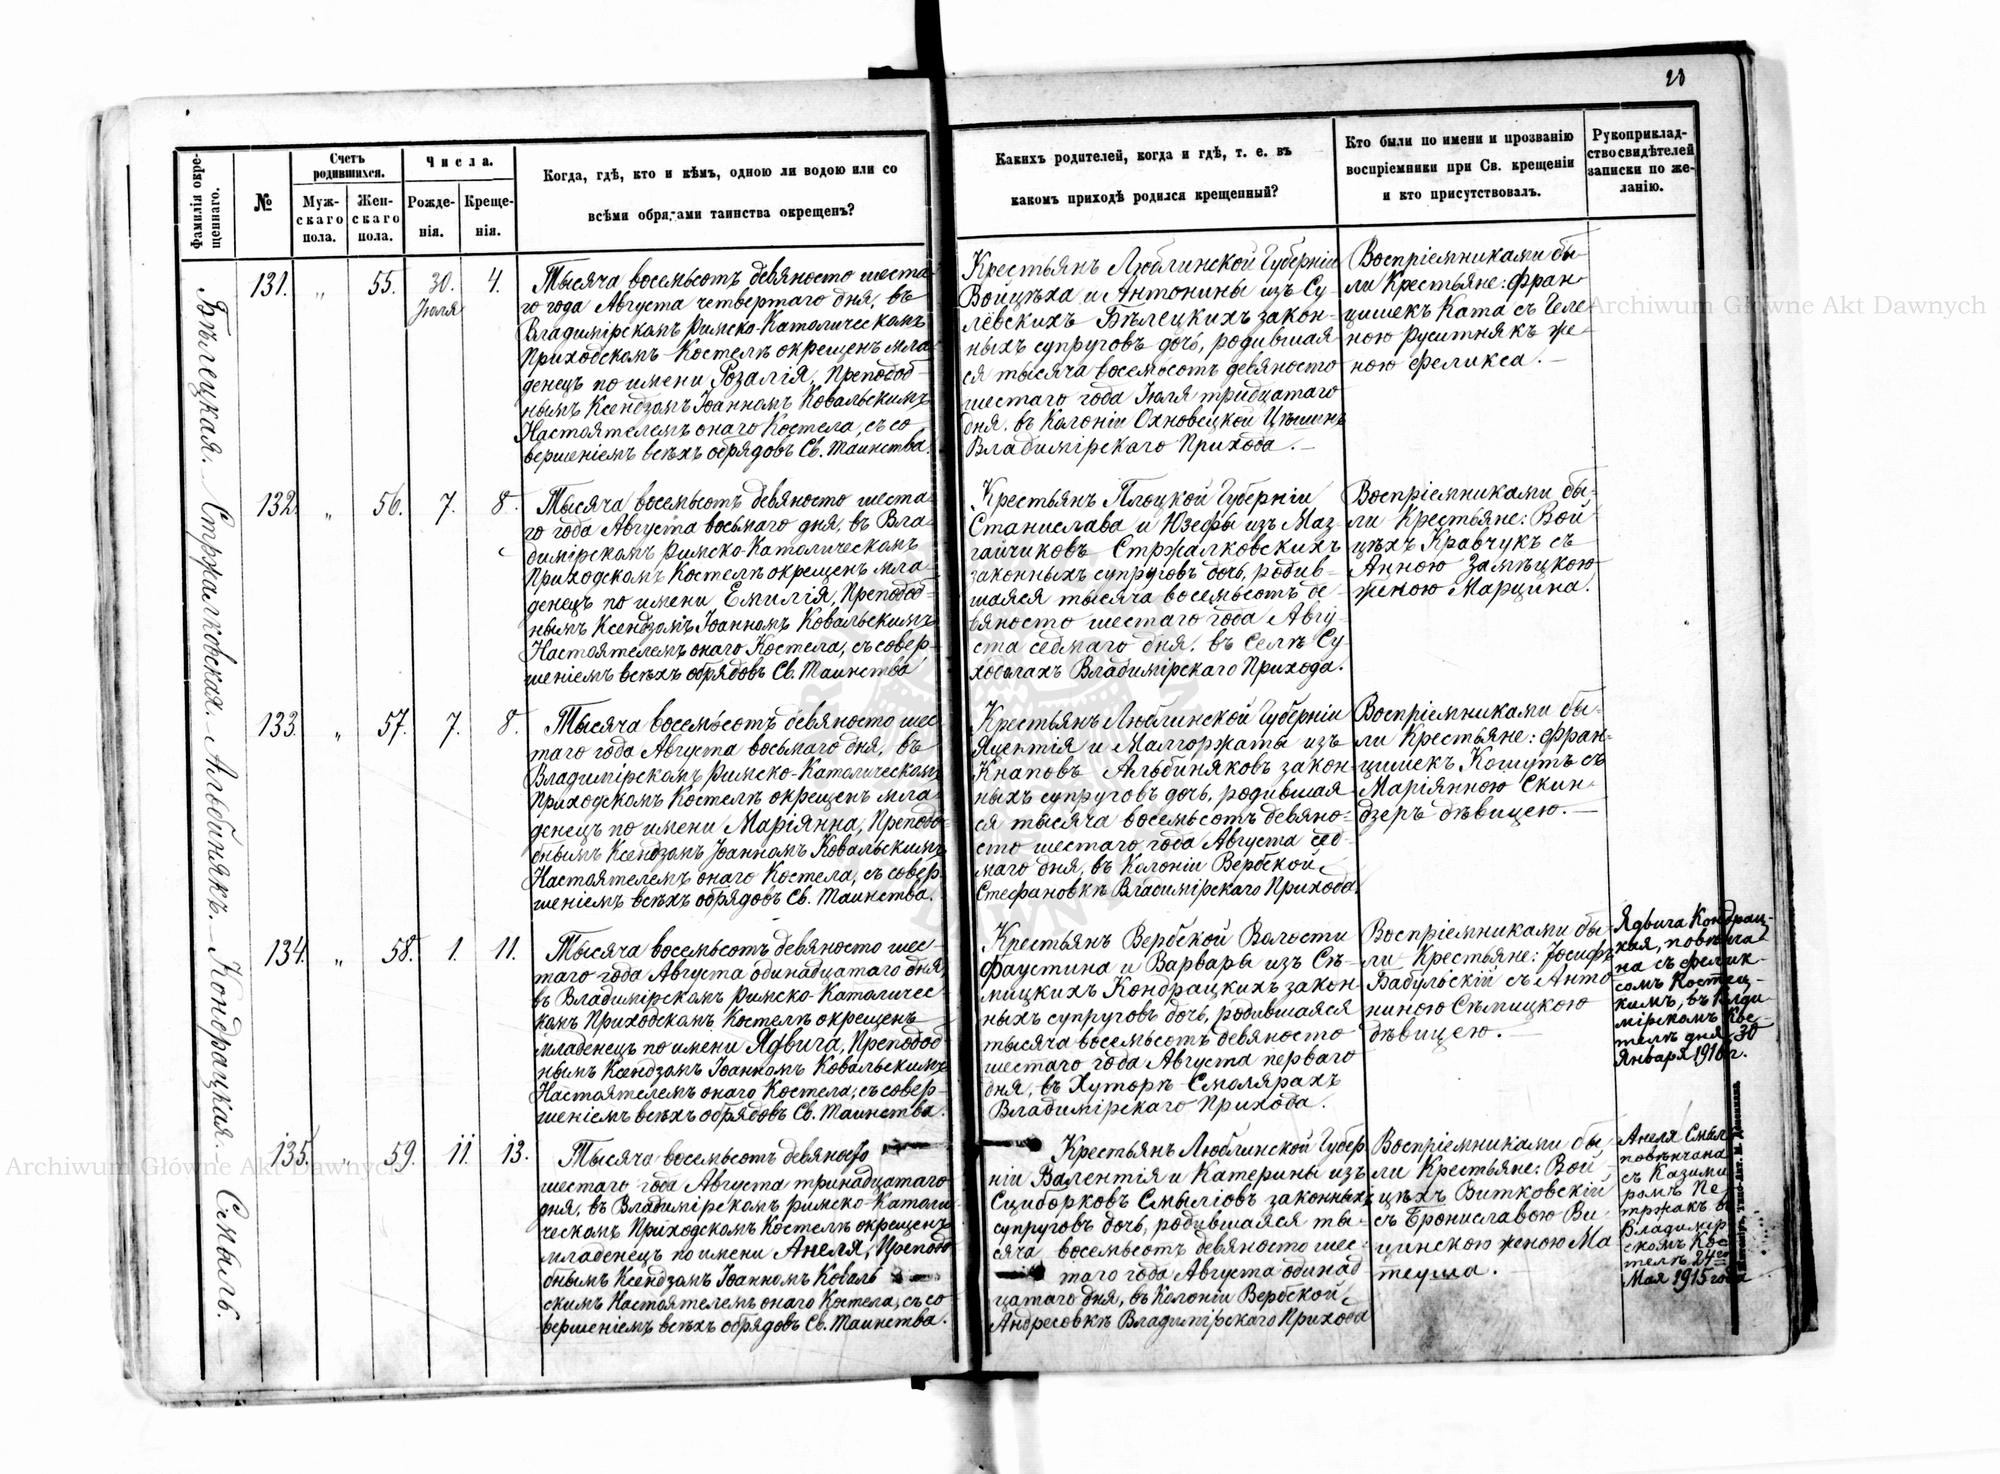 28
Фамилія окре-
щеннаго.
№
Счетъ
родившихся.
Муж-
скаго
пола.
Жен-
скаго
пола.
Числа.
Рожде-
нія.
Креще-
нія.
Когда, гдѣ, кто и кѣмъ, одною ли водою или со
всѣми обрядами таинства окрещенъ?
Какихъ родителей, когда и гдѣ, т. е. въ
какомъ приходѣ родился крещенный?
Кто были по имени и прозванію
воспріемники при Св. крещеніи
и кто присутствовалъ.
Рукоприклад-
ство свидѣтелей
записки по же-
ланію.
Бѣлецкая.
131. „ 55. 30. 4.
Іюля
Тысяча восемьсотъ девяносто шеста-
го года Августа четвертаго дня, въ
Владимірскомъ Римско-Католическомъ
Приходскомъ Костелѣ окрещенъ мла-
денецъ по имени Розалія, Преподоб-
нымъ Ксендзомъ Іоанномъ Ковальскимъ
Настоятелемъ онаго Костела, съ со
вершеніемъ всѣхъ обрядовъ Св. Таинства.
Крестьянъ Люблинской Губерніи
Войцѣха и Антонины изъ Су
лёвскихъ Бѣлецкихъ закон-
ныхъ супруговъ дочь, родившая
ся тысяча восемьсотъ девяносто
шестаго года Іюля тридцатаго
дня. въ Колоніи Охновецкой
Владимірскаго Прихода.—
Воспріемниками бы-
ли Крестьяне: Фран-
цишекъ Ката съ Геле
ною Руситнякъ же-
ною Феликса.—
Стржалковская.
132. „ 56. 7. 8.
Тысяча восемьсотъ девяносто шеста-
го года Августа восьмаго дня, въ Вла-
димірскомъ Римско-Католическомъ
Приходскомъ Костелѣ окрещенъ мла-
денецъ по имени Емилія, Преподоб-
нымъ Ксендзомъ Іоанномъ Ковальскимъ
Настоятелемъ онаго Костела, съ совер-
шеніемъ всѣхъ обрядовъ Св. Таинства
Крестьянъ Плоцкой Губерніи
Станислава и Юзефы изъ Маз-
гайчиковъ Стржалковскихъ
законныхъ супруговъ дочь, родив-
шаяся тысяча восемьсотъ де-
вяносто шестаго года Авгу-
ста седмаго дня. въ Селѣ Су-
ходолахъ Владимірскаго Прихода.
Воспріемниками бы-
ли Крестьяне: Вой-
цѣхъ Кравчукъ съ
Анною Замѣцкою
женою Марцина.
Альбинякъ.
133. „ 57. 7. 8.
Тысяча восемьсотъ девяносто шес-
таго года Августа восьмаго дня, въ
Владимірскомъ Римско-Католическомъ
Приходскомъ Костелѣ окрещенъ мла-
денецъ по имени Маріянна, Преподо-
бнымъ Ксендзомъ Іоанномъ Ковальскимъ
Настоятелемъ онаго Костела, съ совер-
шеніемъ всѣхъ обрядовъ Св. Таинства.
Крестьянъ Люблинской Губерніи
Яцентія и Малгоржаты изъ
Кнаповъ Альбиняковъ закон-
ныхъ супруговъ дочь, родившая
ся тысяча восемьсотъ девяно-
сто шестаго года Августа сед-
маго дня, въ Колоніи Вербской
Стефановкѣ Владимірскаго Прихода.
Воспріемниками бы-
ли Крестьяне: Фран-
цишекъ Кошутъ съ
Маріянною Скин-
дзеръ дѣвицею.—
Кондрацкая.
134. „ 58. 1. 11.
Тысяча восемьсотъ девяносто шес-
таго года Августа одинадцатаго дня,
въ Владимірскомъ Римско-Католичес-
комъ Приходскомъ Костелѣ окрещенъ
младенецъ по имени Ядвига, Преподоб-
нымъ Ксендзомъ Іоанномъ Ковальскимъ
Настоятелемъ онаго Костела, съ совер-
шеніемъ всѣхъ обрядовъ Св. Таинства.
Крестьянъ Вербской Волости
Фаустина и Варвары изъ Сѣ-
мицкихъ Кондрацкихъ закон-
ныхъ супруговъ дочь, родившаяся
тысяча восемьсотъ девяносто
шестаго года Августа перваго
дня, въ Хуторѣ Смолярахъ
Владимірскаго Прихода.
Воспріемниками бы-
ли Крестьяне: Іосифъ
Бабульскій съ Анто
ниною Сѣмицкою
дѣвицею.—
Ядвига Кондрац-
кая, повѣнча
на съ Фелик-
сомъ Костец-
кимъ, въ Влади
мірскомъ Кос-
телѣ дня 30
Января 1916 г.
Смыль.
135. „ 59. 11. 13.
Тысяча восемьсотъ девяносто
шестаго года Августа тринадцатаго
дня, въ Владимірскомъ Римско-Католи-
ческомъ Приходскомъ Костелѣ окрещенъ
младенецъ по имени Анеля, Преподо
бнымъ Ксендзомъ Іоанномъ Коваль
скимъ Настоятелемъ онаго Костела, съ со
вершеніемъ всѣхъ обрядовъ Св. Таинства.
Крестьянъ Люблинской Губер
ніи Валентія и Катерины изъ
Сциборковъ Смыліовъ законныхъ
супруговъ дочь, родившаяся ты-
сяча восемьсотъ девяносто шес-
таго года Августа одинад
цатаго дня, въ Колоніи Вербской
Андресовкѣ Владимірскаго Прихода
Воспріемниками бы-
ли Крестьяне: Вой-
цѣхъ Витковскій
съ Брониславою Ви-
цинскою женою Ма
теуша.
Анеля Смыль
повѣнчана
съ Казими
ромъ Пе
тржакъ въ
Владимір
скомъ Кос
телѣ 24го
Мая 1915 года
Archiwum Główne Akt Dawnych
Archiwum Główne Akt Dawnych